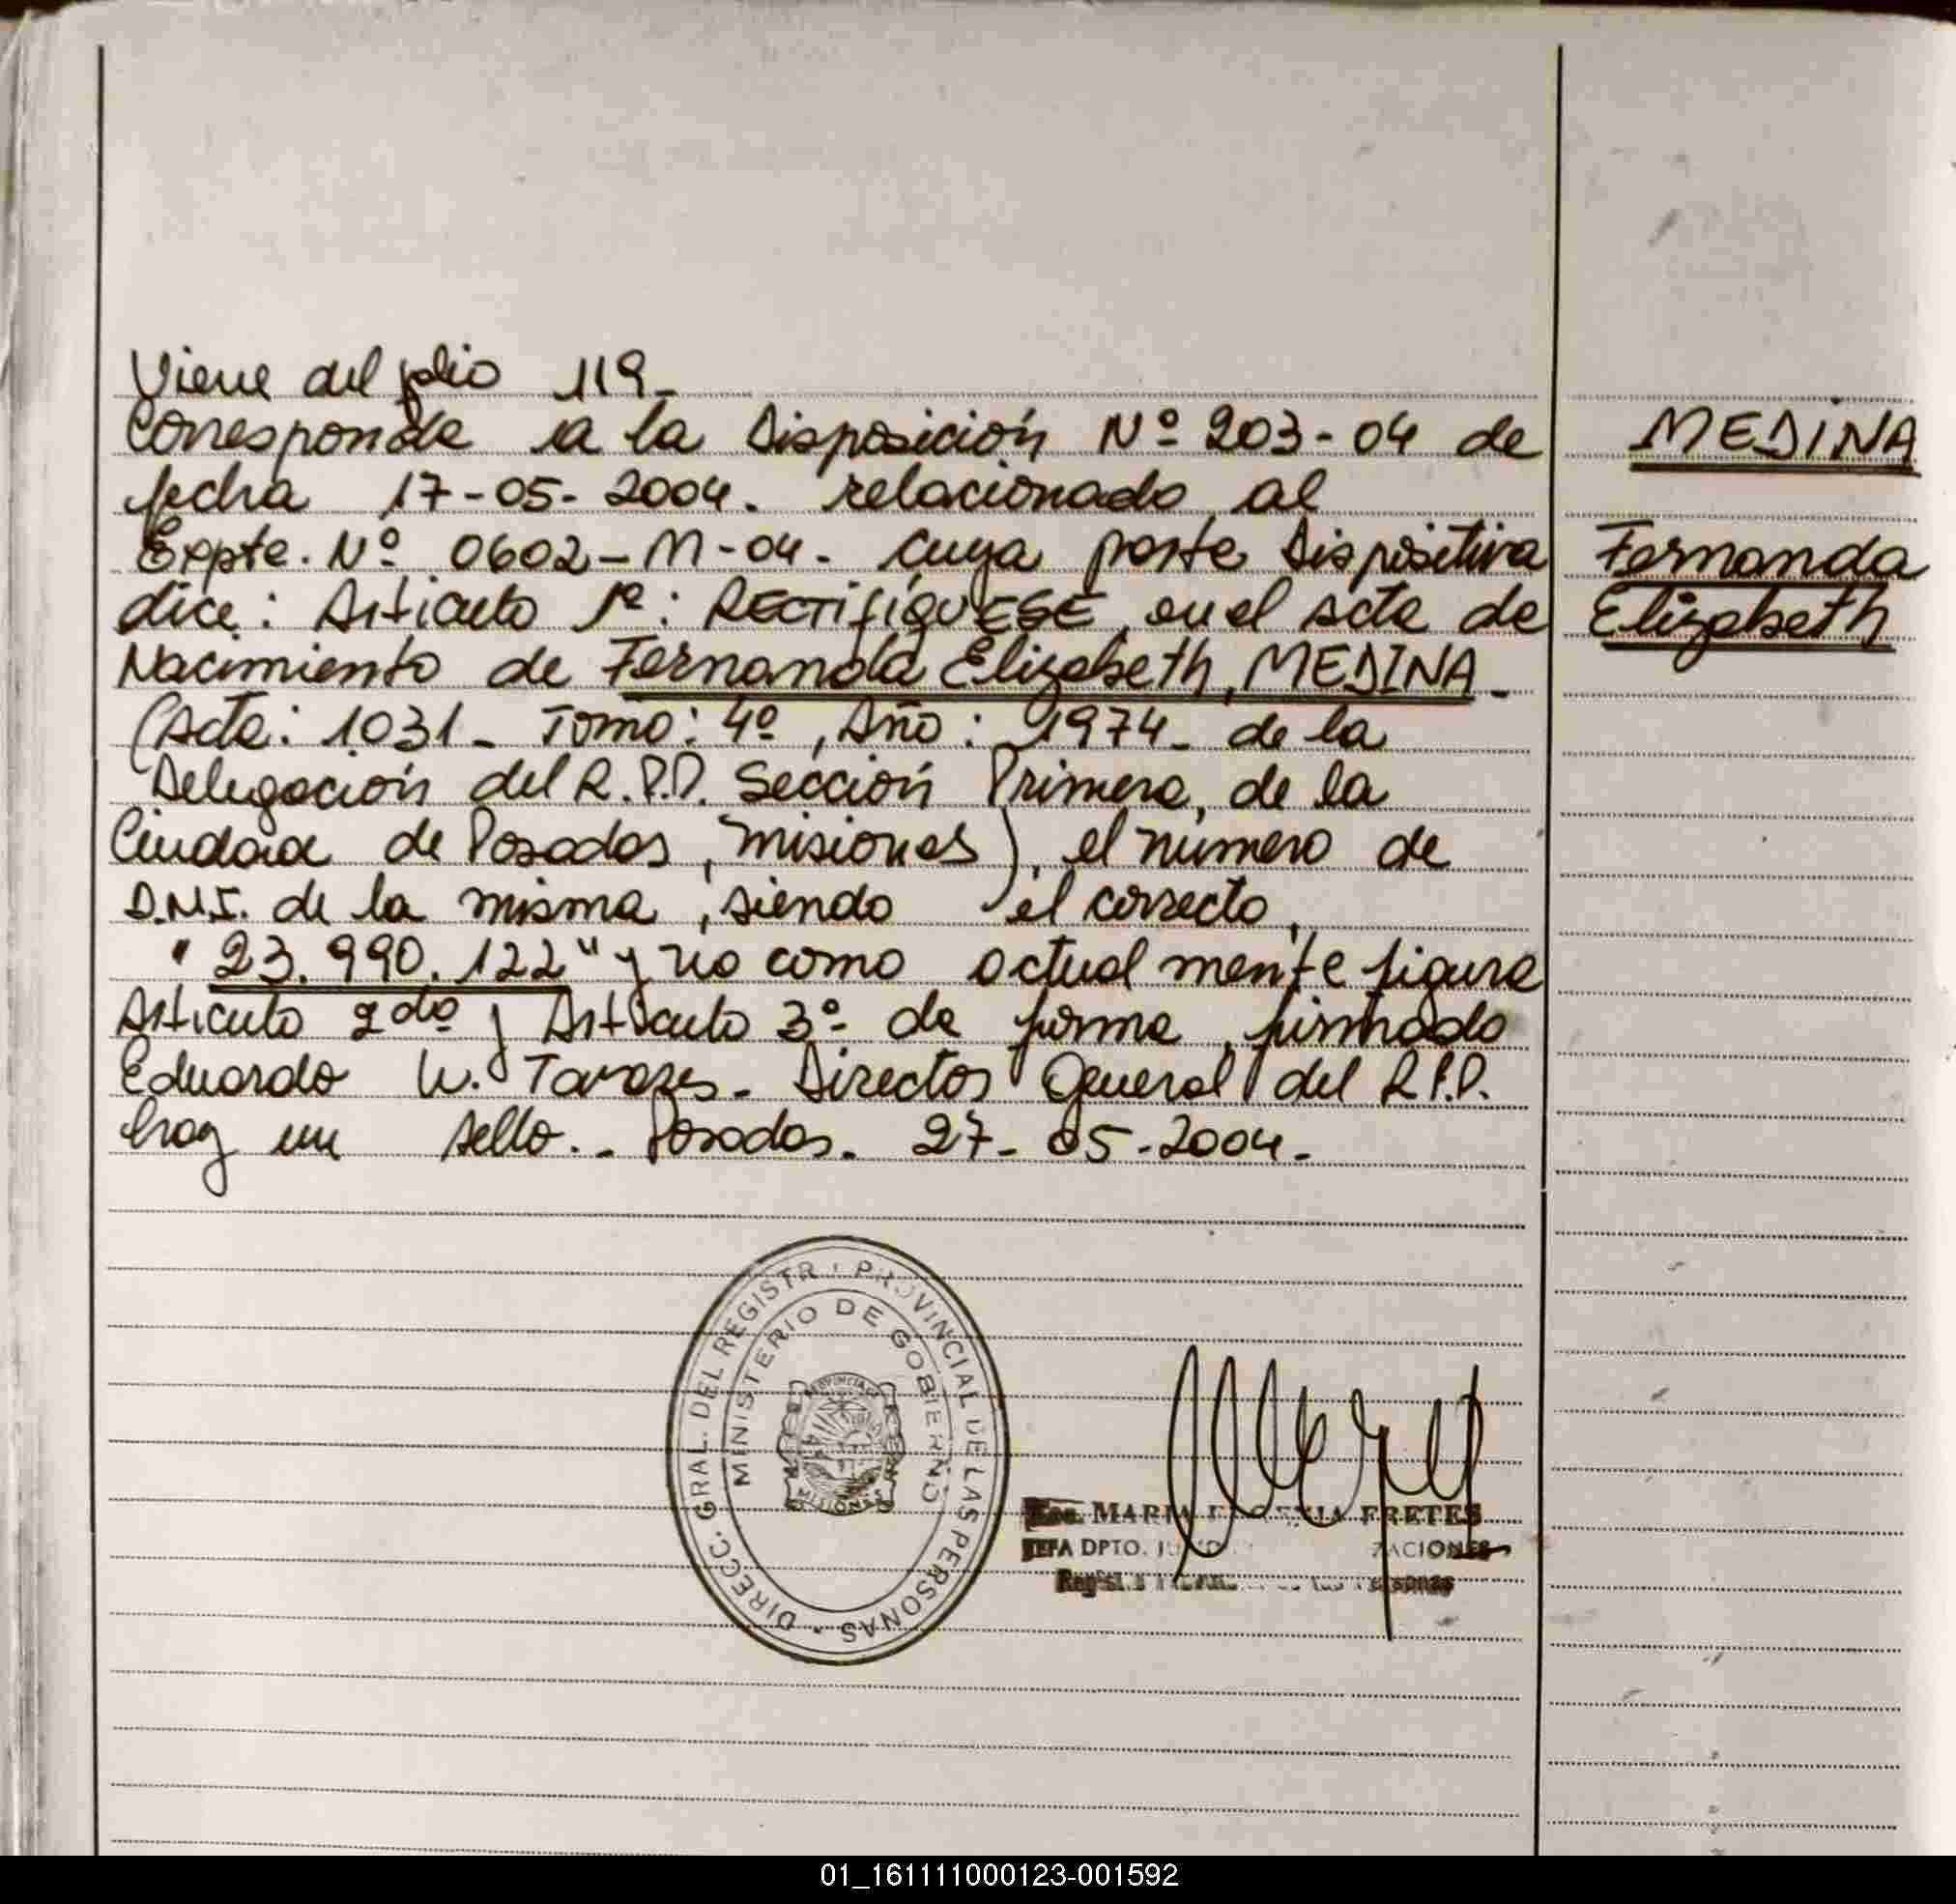 Viene del folio 119_
Corresponde a la Disposición Nº 203-04 de
fecha 17-05-2004. relacionado al
Expte. Nº 0602-M-04. cuya parte Dispositiva
dice: Artículo 1º: RECTIFIQUESE, en el acta de
Nacimiento de Fernanda Elizabeth, MEDINA_
(Acta: 1031_ Tomo: 4º, Año: 1974_ de la
Delegación del R.P.P. Sección Primera, de la
Ciudad de Posadas, Misiones), el número de
D.N.I. de la misma, siendo el correcto,
"23.990.122" y no como actualmente figura
Artículo 2do y Artículo 3º de forma, firmado
Eduardo W. Tavares_ Director General del R.P.P.
hay un sello._ Posadas. 27-05-2004.
MEDINA
Fernanda
Elizabeth
DIRECC. GRAL. DEL REGISTR PROVINCIAL DE LAS PERSONAS
MINISTERIO DE GOBIERNO
PROVINCIA DE
MISIONES
MARIA EUGENIA FRETES
JEFA DPTO.
01_161111000123-001592